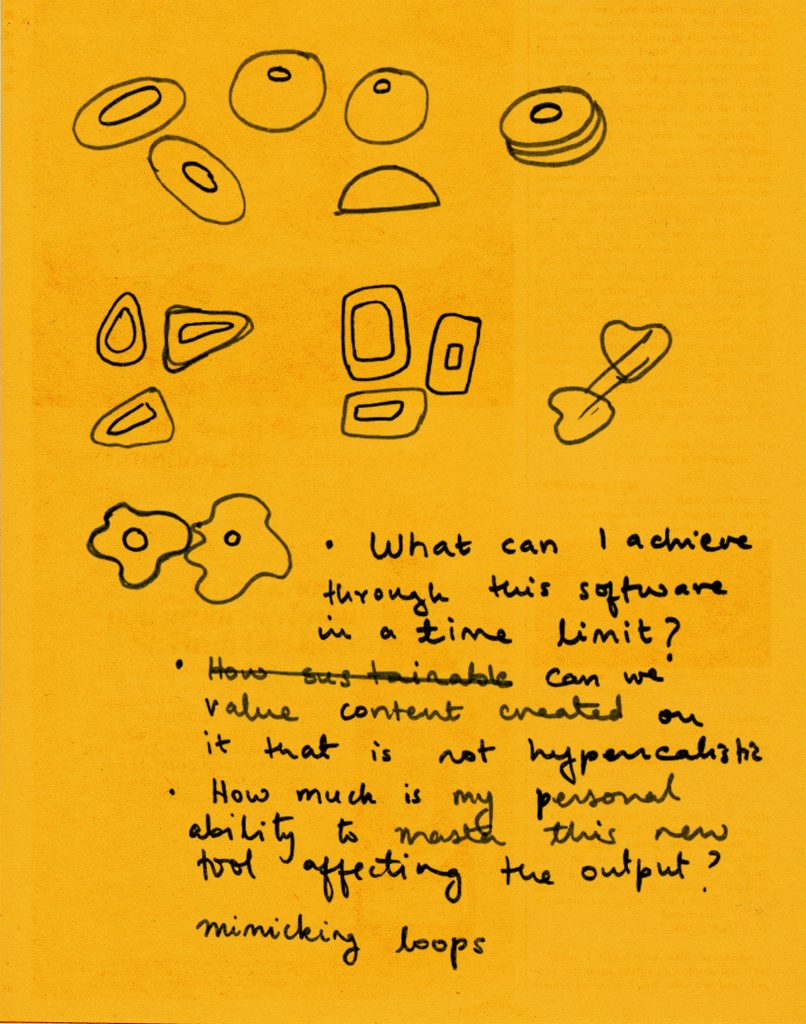 • What can I achieve
through this software
in a time limit?
• How sustainable can we
value content created on
it that is not hyperrealistic
• How much is my personal
ability to master this new
tool affecting the output?
mimicking loops